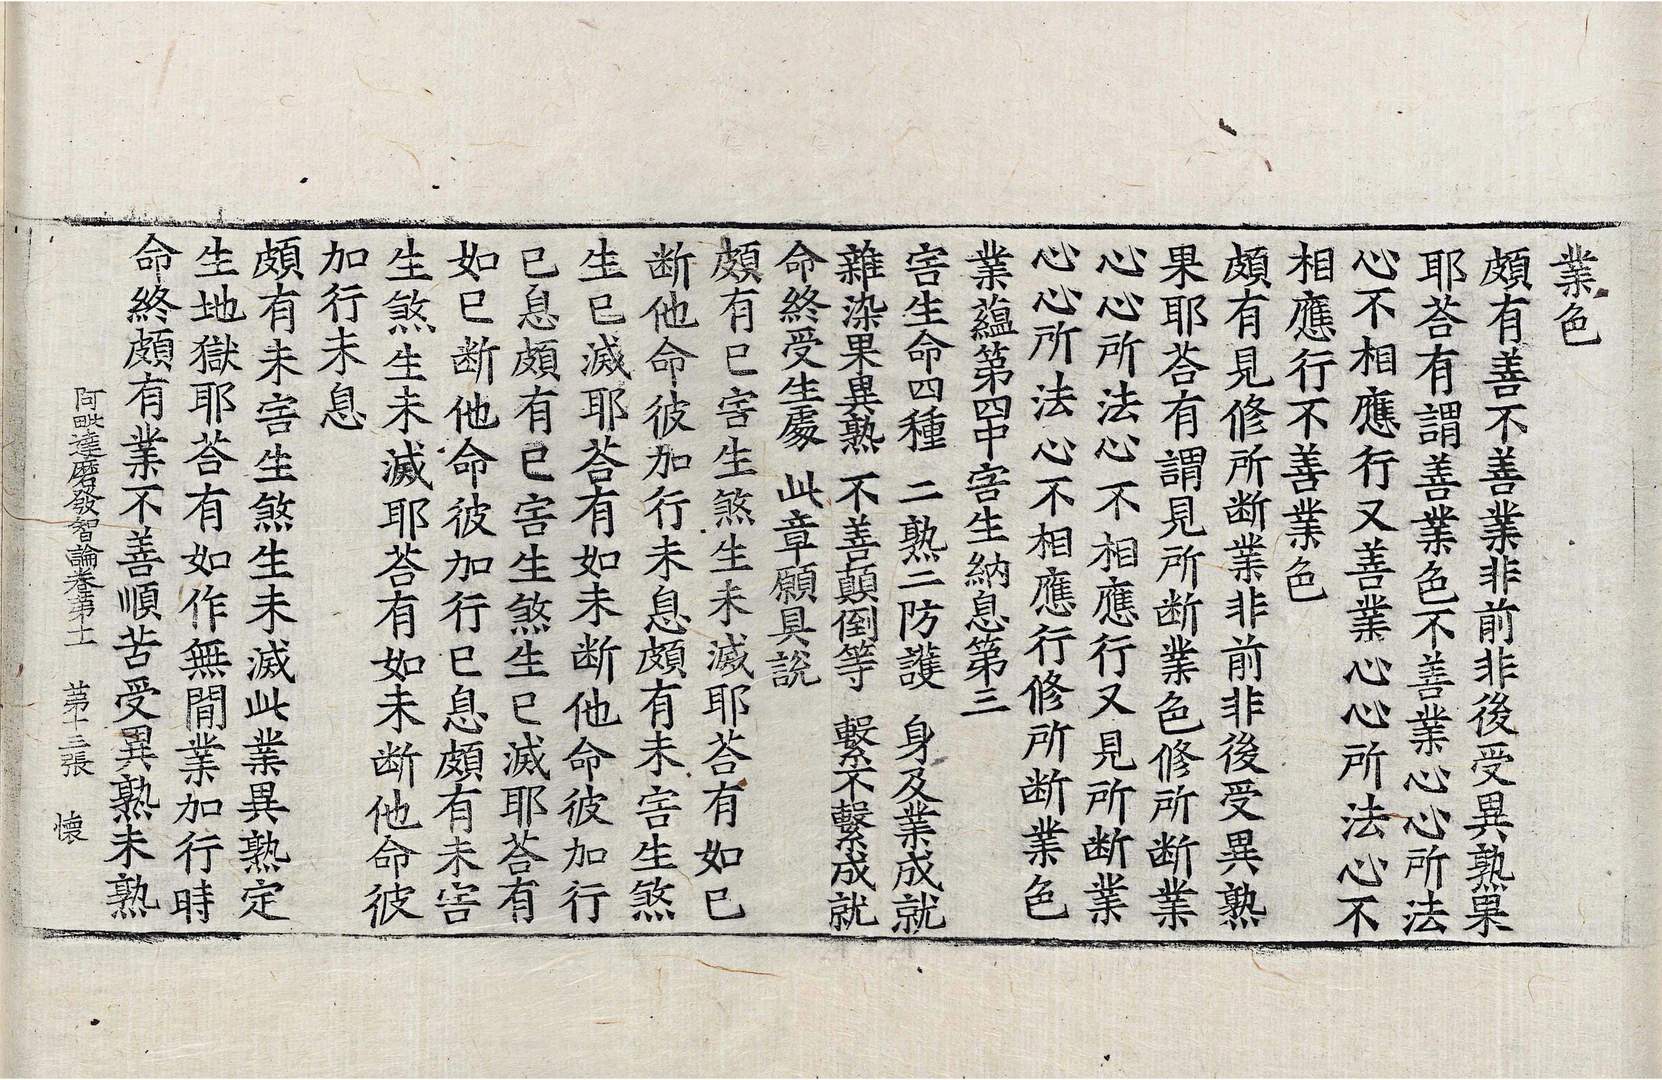 業色
頗有善不善業非前非後受異熟果
耶荅有謂善業色不善業心心所法
心不相應行又善業心心所法心不
相應行不善業色
頗有見修所断業非前非後受異熟
果耶荅有謂見所断業色修所断業
心心所法心不相應行又見所断業
心心所法心不相應行修所断業色
業蘊第四中害生納息第三
害生命四種 二熟二防護 身及業成就
雜染果異熟 不善顛倒等 繫不繫成就
命終受生處 此章願具說
頗有已害生煞生未滅耶荅有如已
断他命彼加行未息頗有未害生煞
生已滅耶荅有如未断他命彼加行
已息頗有已害生煞生已滅耶荅有
如已断他命彼加行已息頗有未害
生煞生未滅耶荅有如未断他命彼
加行未息
頗有未害生煞生未滅此業異熟定
生地獄耶荅有如作無間業加行時
命終頗有業不善順苦受異熟未熟
阿毗達磨發智論卷第十一 第十三張 懷